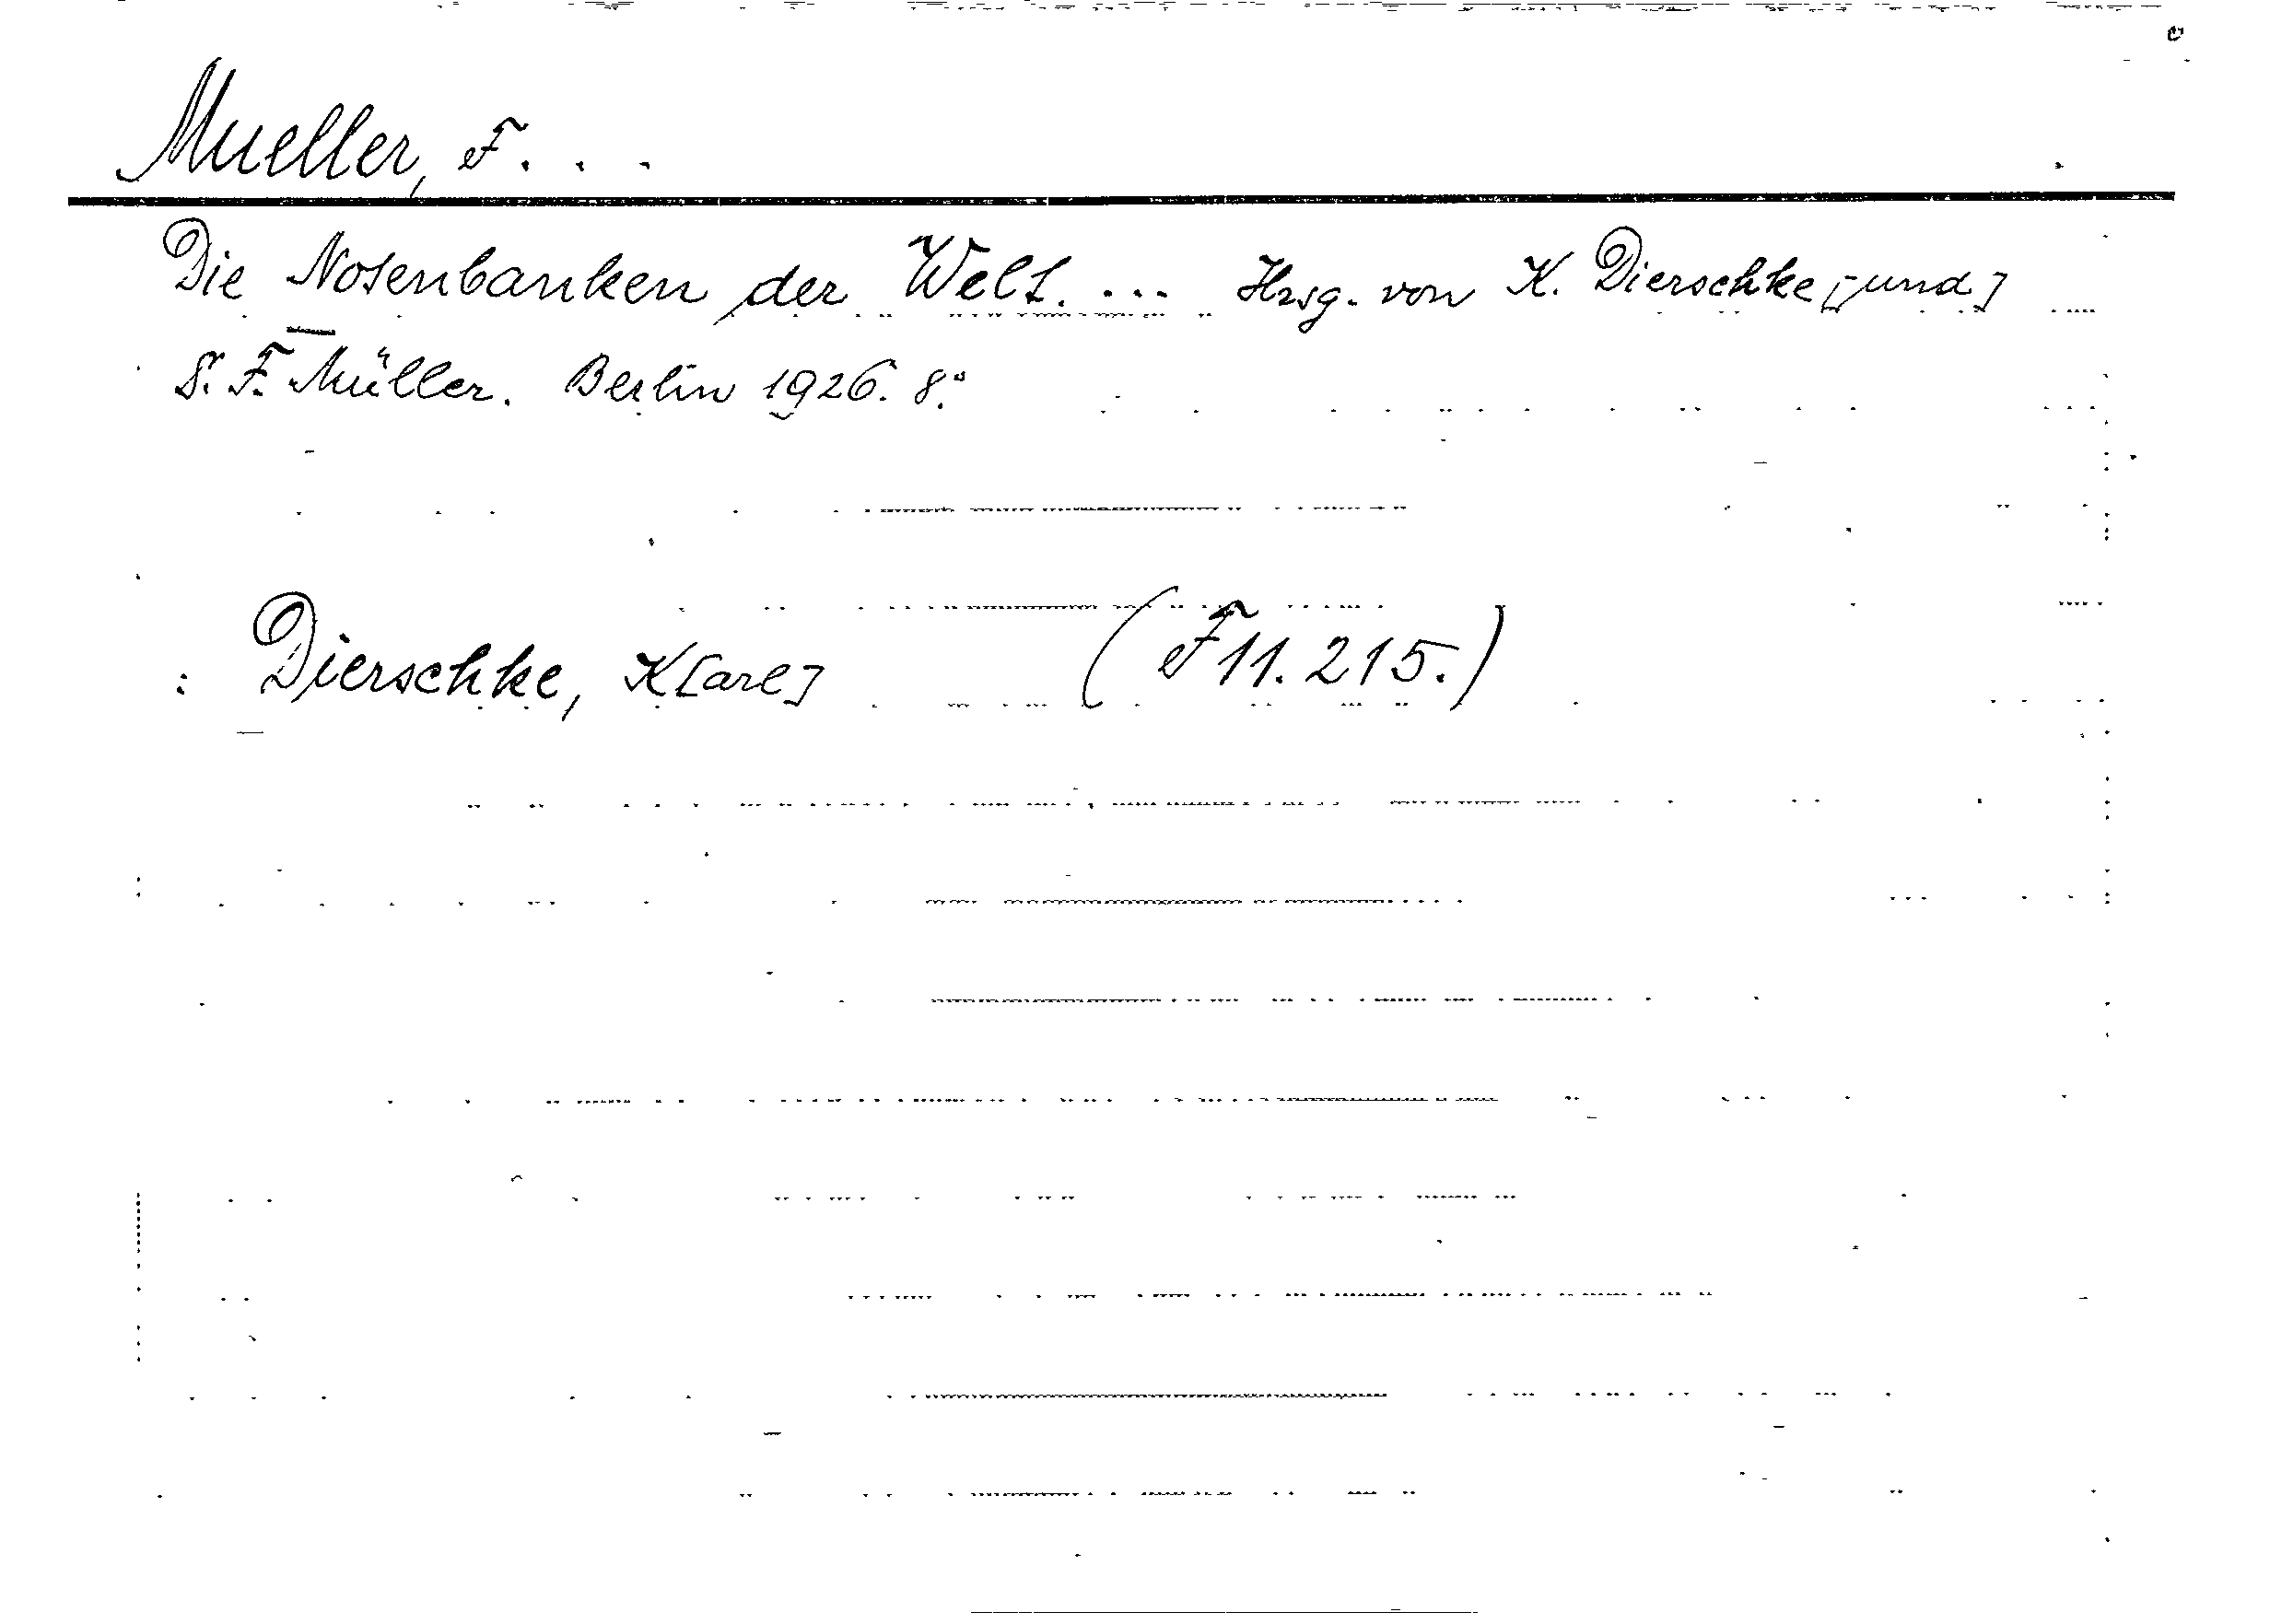 Mueller, F. . .
Die Notenbanken der Welt. ... Hrsg. von K. Dierschke [und]
Dr. F. Müller. Berlin 1926. 8.°
: Dierschke, K[arl] (F 11. 215.)